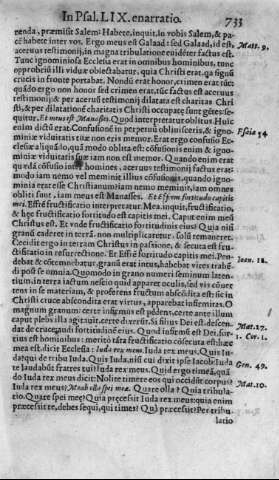 In Psal. LIX. enarratio. 733
nenda, præmisit Salem: Habete, inquit, in vobis Salem, & pa-
cem habete inter vos. Ergo meus est Galaad: sed Galaad, id est,
Mat. 9.
acervus testimonij, in magna tribulatione evidēter factus est.
Tunc ignominiosa Ecclesia erat in omnibus hominibus, tunc
opprobriū illi viduæ obiectabatur, quia Christi erat, qa signū
crucis in fronte portabat. Nondū erat honor, crimen erat: tūc
quādo ergo non honor sed crimen erat, tūc factus est acervus
testimonij; & per acervū testimonij dilatata est charitas Chri
sti; & per dilatationē charitatis Christi occupatę sunt gētes: se-
quitur, Et meus est Manasses. Quod interpretatur oblitus Huic
enim dictū erat. Confusionē in perpetuū oblivisceris, & igno-
Esaiæ 54.
miniæ viduitatis tuæ non eris memor. Erat ergo confusio Ec-
clesiæ aliquādo, quæ modo oblita est: cōfusionis enim & igno-
miniæ viduitatis suæ iam non est memor. Quando enim erat
quædā cōfusio inter homines, acervus testimonij factus erat:
modo iam nemo vel meminit illius cōfusionis, quando igno-
minia erat esse Christianum: iam nemo meminit, iam omnes
obliti sunt, iam meus est Manasses. Et Efrem fortitudo capitis
mei. Efrē fructificatio interpretatur. Mea, inquit, fructificatio,
& hęc fructificatio fortitudo est capitis mei. Caput enim meū
Christus est. Et vnde fructificatio fortitudinis eius? Quia nisi
granū caderet in terrā, non multiplicaretur, solū remaneret.
Cecidit ergo in terram Christus in passione, & secuta est fru-
ctificatio in resurrectione. Et Efrē fortitudo capitis mei. Pen-
Ioan. 12.
debat & cōtemnebatur, granū erat intus, habebat vires trahē-
di post se omnia. Quomodo in grano numeri seminum laten-
t, in terra iactum nescio quid apparet oculis, sed vis cōuer
tens in se materiam, & pariens fructum abscōdita est: sic in
Christi cruce abscondita erat virtus, apparebat infirmitas. O
magnum granum: certe infirmus est pēdens, certe ante illum
caput plebs illa agitavit, certe dixerunt, Si filius Dei est, descen-
Mat. 27.
dat de cruce: audi fortitudinē eius. Quod infirmū est Dei, for-
1. Cor. 1.
tius est hominibus: meritō tāta fructificatio cōsecuta est: hæc
mea est, dicit Ecclesia: Iuda rex meus. Iuda rex meus. Quis Iu-
da? qui de tribu Iuda. Quis Iuda, nisi cui dixit ipse Iacob: Iuda
Gen. 49.
te laudabūt fratres tui? Iuda rex meus. Quid ergo timeā, quā-
do Iuda rex meus dicit: Nolite timere eos qui occidūt corpus?
Mat. 10.
Iuda rex meus, Moab olla spei meæ. Quare olla? Quia tribula-
tio. Quare spei meæ? Quia pręcessit Iuda rex meus: quia enim
pręcessit te, debes sequi, qui times? Quā pręcessit? Per tribu-
latio